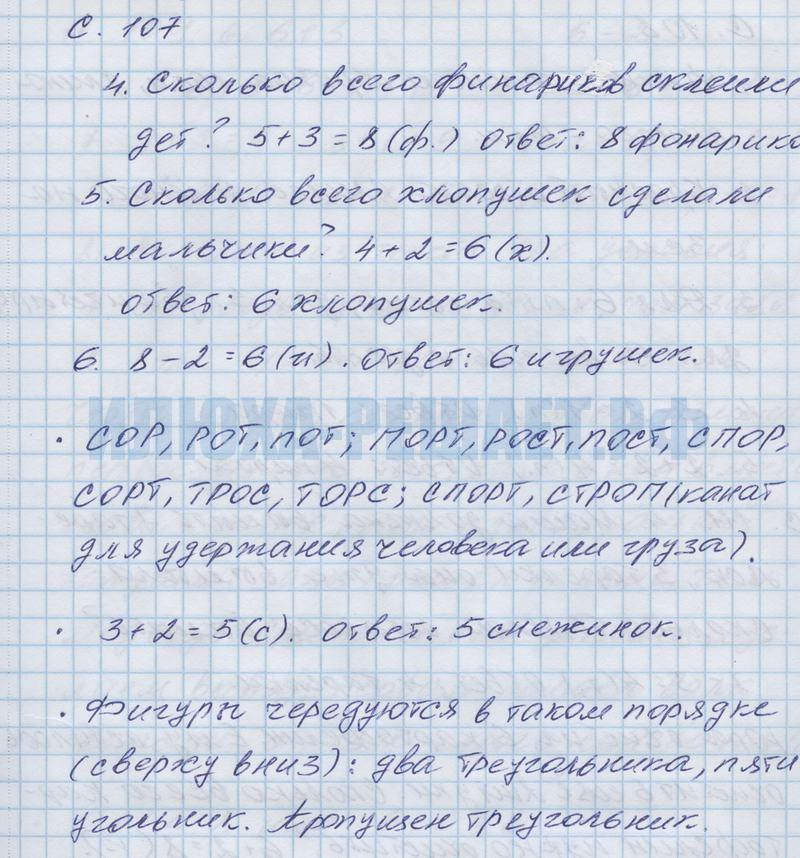 с. 107
4. Сколько всего финариков склеили
дет? 5+3=8(ф.) Ответ: 8 фонарико
5. Сколько всего хлопушек сделали
мальчики? 4+2=6(х).
Ответ: 6 хлопушек.
6. 8-2=6(и). Ответ: 6 игрушек.
ИЛЮХА-РЕШАЕТ.РФ
• СОР, РОТ, ПОТ; ПОРТ, РОСТ, ПОСТ, СПОР,
СОРТ, ТРОС, ТОРС; СПОРТ, СТРОП (канат
для удержания человека или груза).
• 3+2=5(с). Ответ: 5 снежинок.
• Фигуры чередуются в таком порядке
(сверху вниз): два треугольника, пяти
угольник. Пропущен треугольник.